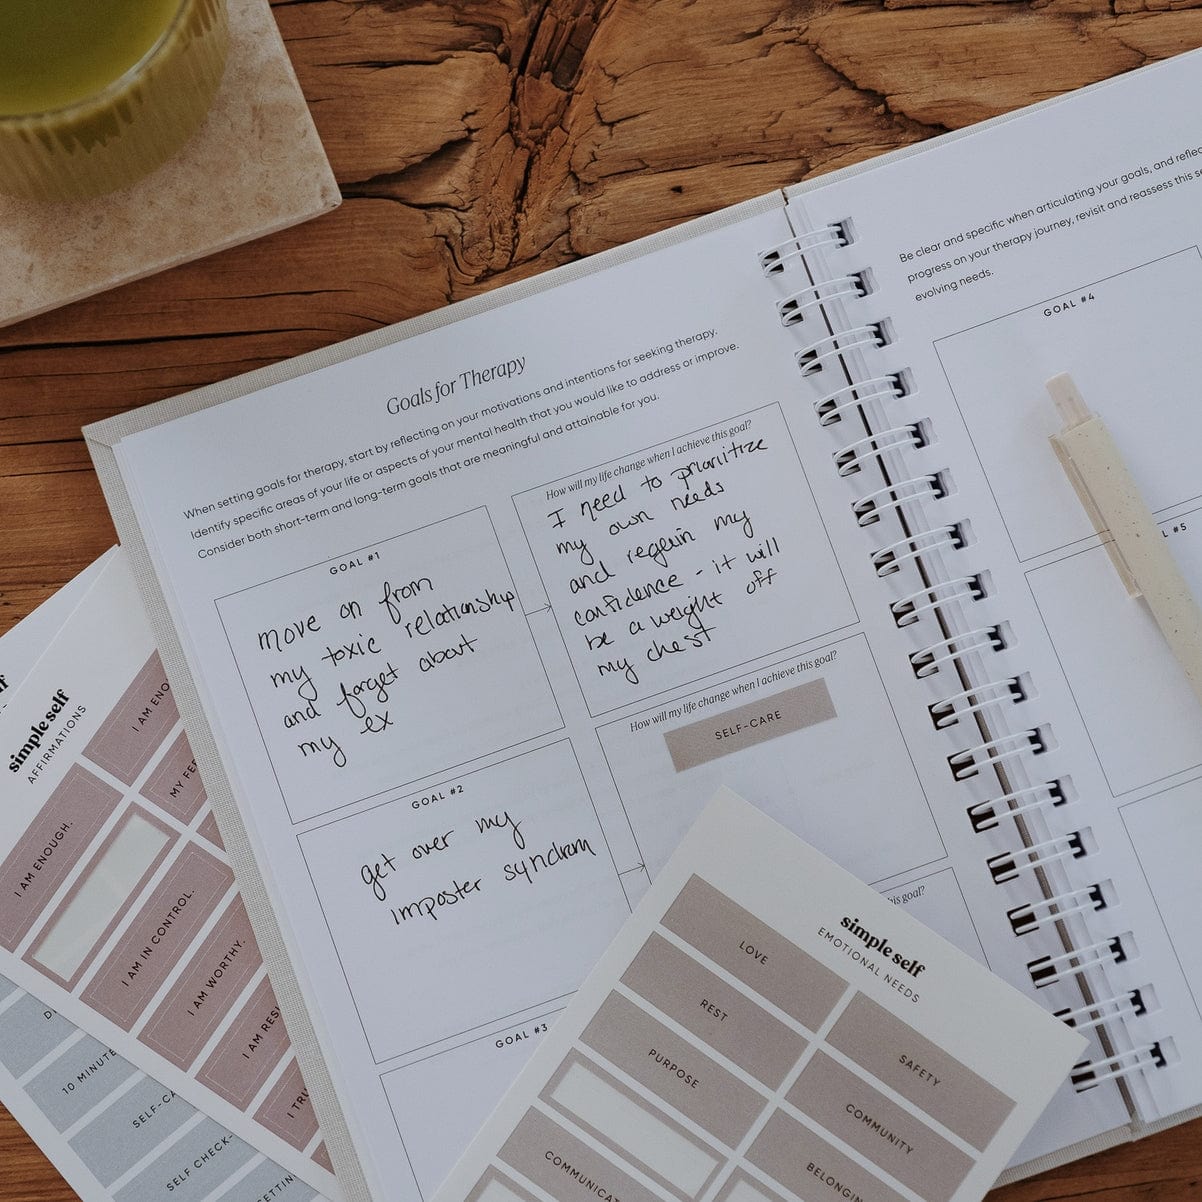 Goals for Therapy
When setting goals for therapy, start by reflecting on your motivations and intentions for seeking therapy.
Identify specific areas of your life or aspects of your mental health that you would like to address or improve.
Consider both short-term and long-term goals that are meaningful and attainable for you.
GOAL #1
move on from
my toxic relationship
and forget about
my ex
How will my life change when I achieve this goal?
I need to prioritize
my own needs
and regain my
confidence - it will
be a weight off
my chest
GOAL #2
get over my
imposter syndrom
How will my life change when I achieve this goal?
SELF-CARE
GOAL #3
this goal?
Be clear and specific when articulating your goals, and reflec
progress on your therapy journey, revisit and reassess this se
evolving needs.
GOAL #4
L #5
simple self
AFFIRMATIONS
I AM ENOU
I AM ENOUGH.
MY FEE
I AM IN CONTROL.
I AM WORTHY.
I AM RES
I TRU
D
10 MINUTE
SELF-CA
SELF CHECK-
SETTIN
simple self
EMOTIONAL NEEDS
LOVE
REST
SAFETY
PURPOSE
COMMUNITY
COMMUNICAT
BELONGIN